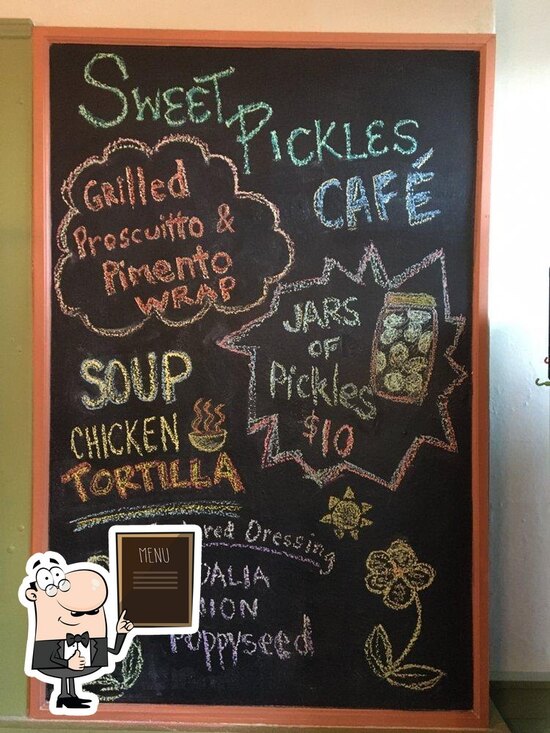 SWEET
PICKLES
CAFÉ
Grilled
Proscuitto &
Pimento
WRAP
JARS
OF
Pickles
$10
SOUP
CHICKEN
TORTILLA
Dressing
MENU
Poppyseed